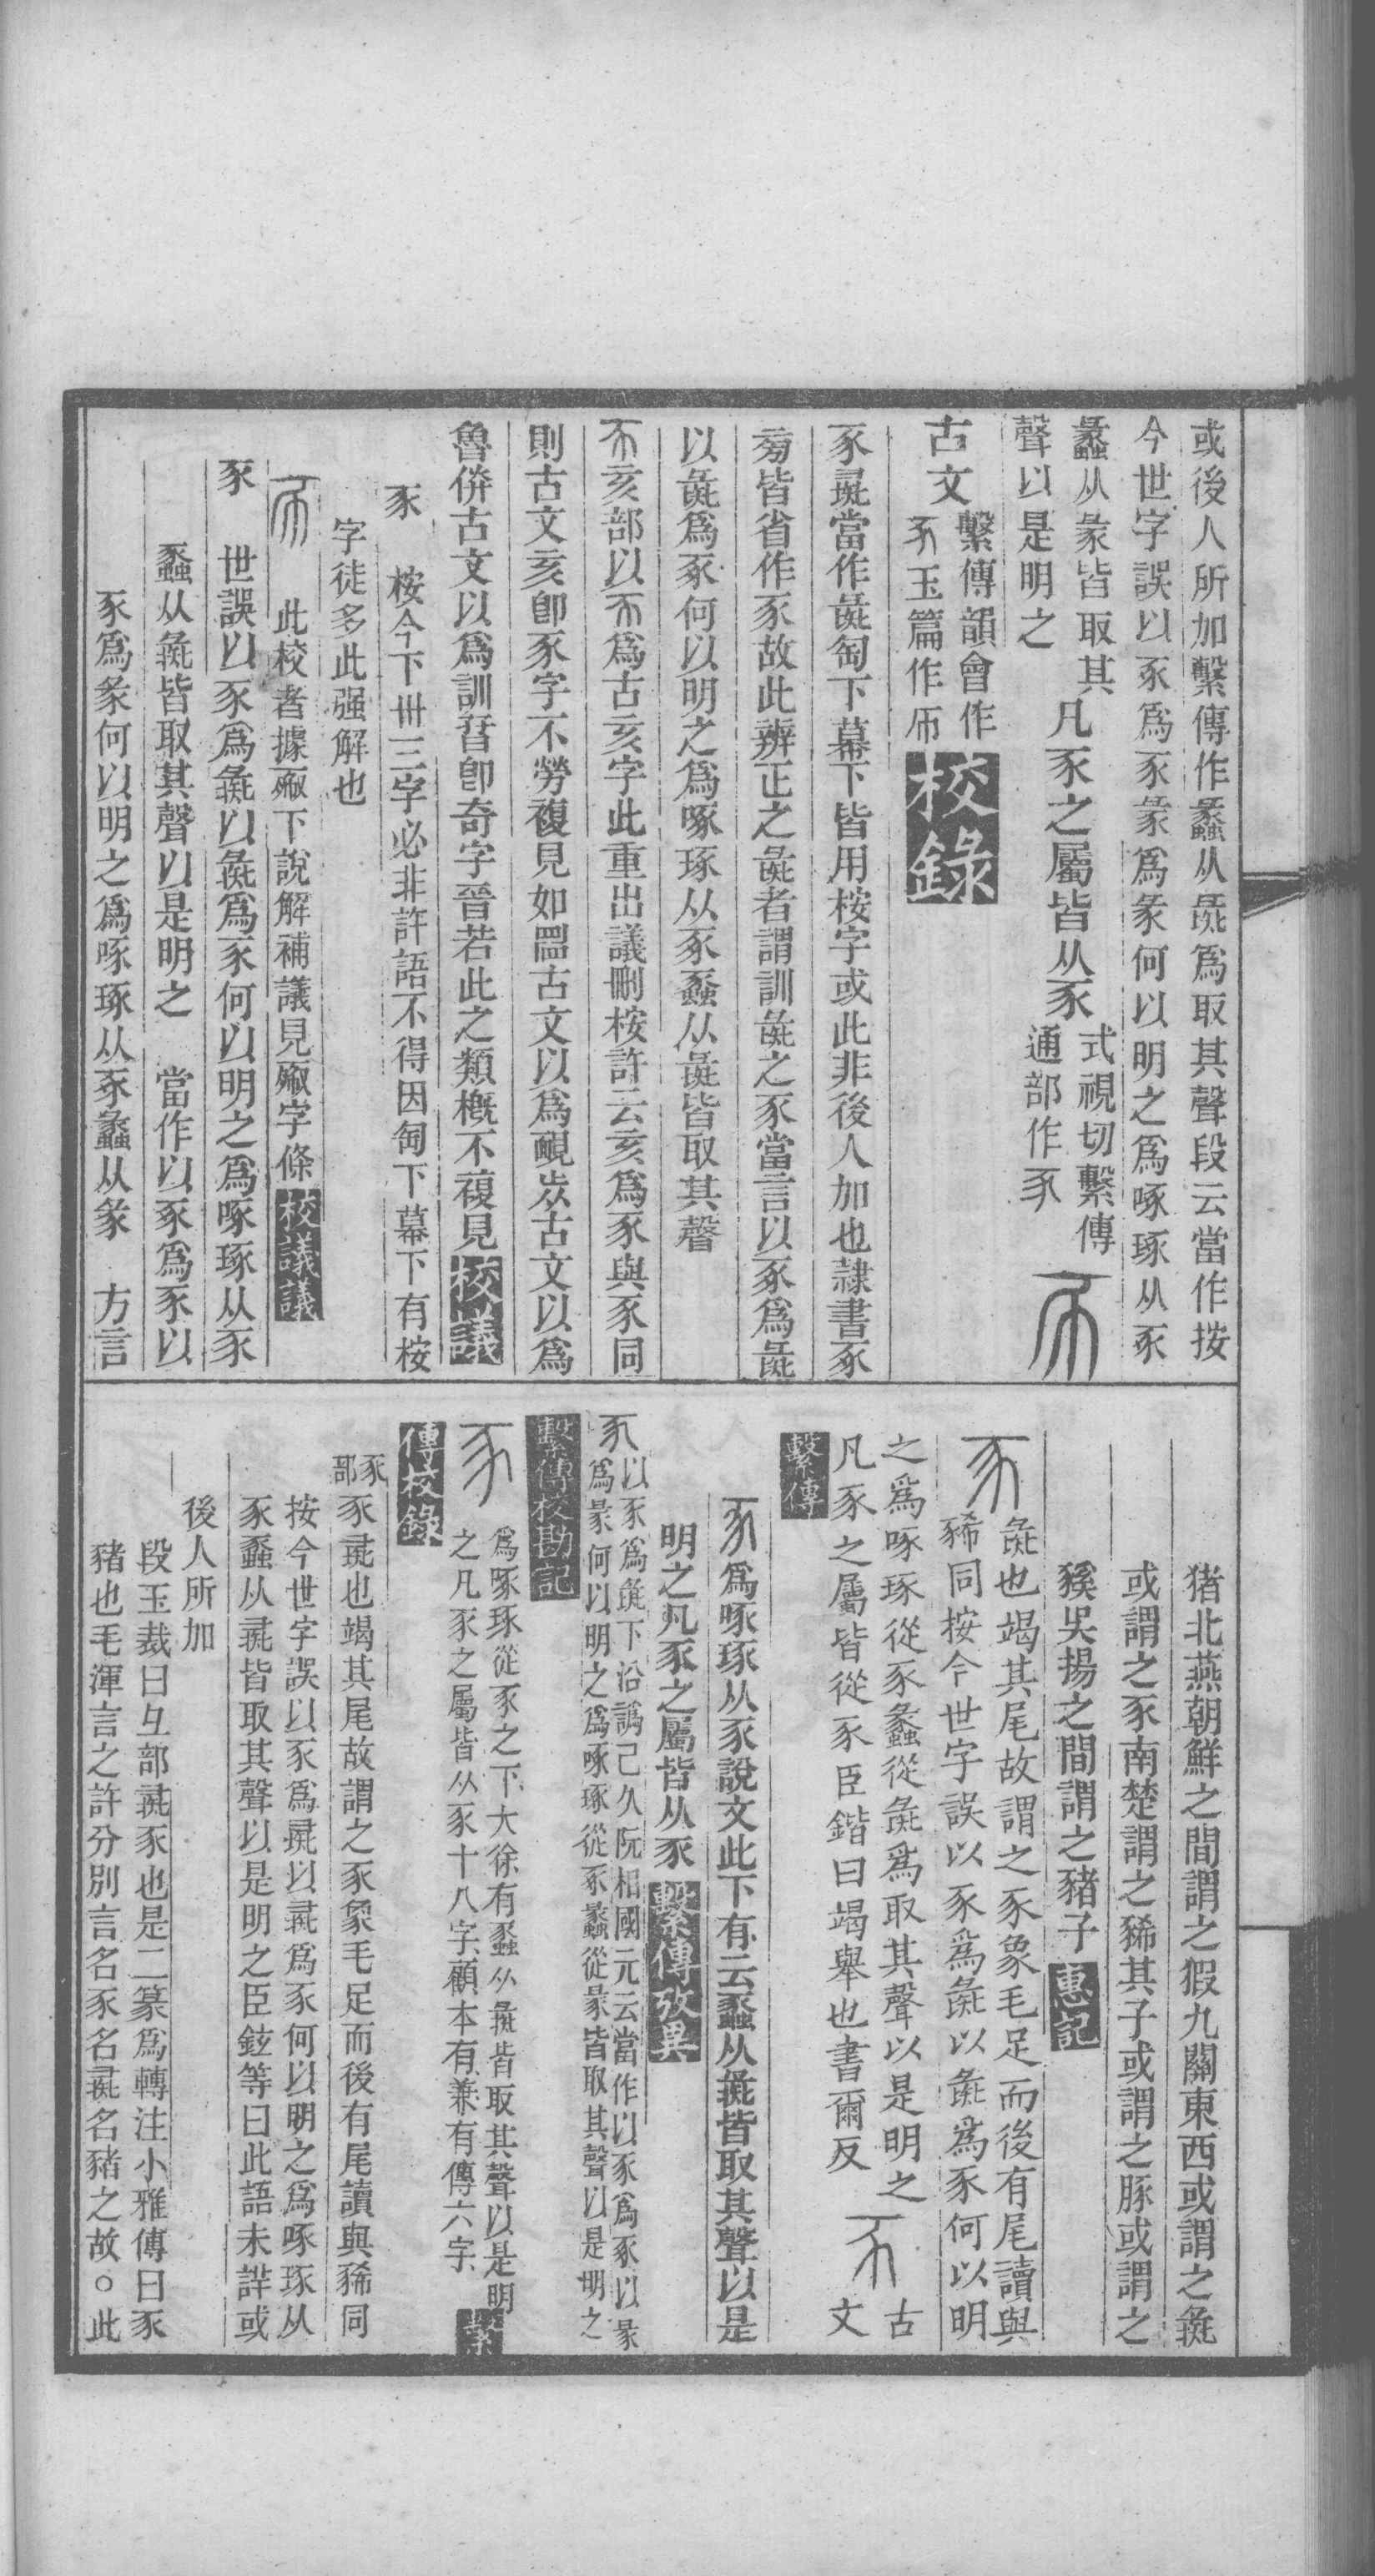 或後人所加繫傳作蠡从彘爲取其聲段云當作按
今世字誤以豕爲豕彖爲彖何以明之爲啄琢从豕
蠡从彖皆取其
聲以是明之
凡豕之屬皆从豕
式視切繫傳
通部作豕
古文
繫傳韻會作
玉篇作
校錄
豕彘當作彘匋下幕下皆用桉字或此非後人加也隷書豕
旁皆省作豕故此辨正之彘者謂訓彘之豕當言以豕爲彘
以彘爲豕何以明之爲啄琢从豕蠡从彘皆取其聲
亥部以爲古亥字此重出議刪桉許云亥爲豕與豕同
則古文亥卽豕字不勞複見如㗊古文以爲
古文以爲
魯倂古文以爲訓
卽奇字晉若此之類槪不複見
校議
豕
桉今下卅三字必非許語不得因匋下幕下有桉
字徒多此强解也
此校者據
下說解補議見
字條
校議議
豕
世誤以豕爲彘以彘爲豕何以明之爲啄琢从豕
蠡从彘皆取其聲以是明之
當作以豕爲豕以
豕爲彖何以明之爲啄琢从豕蠡从彖
方言
猪北燕朝鮮之間謂之豭九關東西或謂之彘
或謂之豕南楚謂之豨其子或謂之豚或謂之
豯吳揚之間謂之豬子
惠記
彘也竭其尾故謂之豕象毛足而後有尾讀與
豨同按今世字誤以豕爲彘以彘爲豕何以明
之爲啄琢從豕蠡從彘爲取其聲以是明之
古
文
凡豕之屬皆從豕臣鍇曰竭舉也書爾反
繫傳
爲啄琢从豕說文此下有云蠡从彘皆取其聲以是
明之凡豕之屬皆从豕
繫傳攷異
以豕爲彘下沿譌已久阮相國元云當作以豕爲豕以彖
爲彖何以明之爲啄琢從豕蠡從彖皆取其聲以是明之
繫傳校勘記
爲啄琢從豕之下大徐有蠡从彘皆取其聲以是明
之凡豕之屬皆从豕十八字顧本有兼有傳六字
繫
傳校錄
豕部
豕彘也竭其尾故謂之豕象毛足而後有尾讀與豨同
按今世字誤以豕爲彘以彘爲豕何以明之爲啄琢从
豕蠡从彘皆取其聲以是明之臣鉉等曰此語未詳或
後人所加
段玉裁曰彑部彘豕也是二篆爲轉注小雅傳曰豕
豬也毛渾言之許分別言名豕名彘名豬之故○此